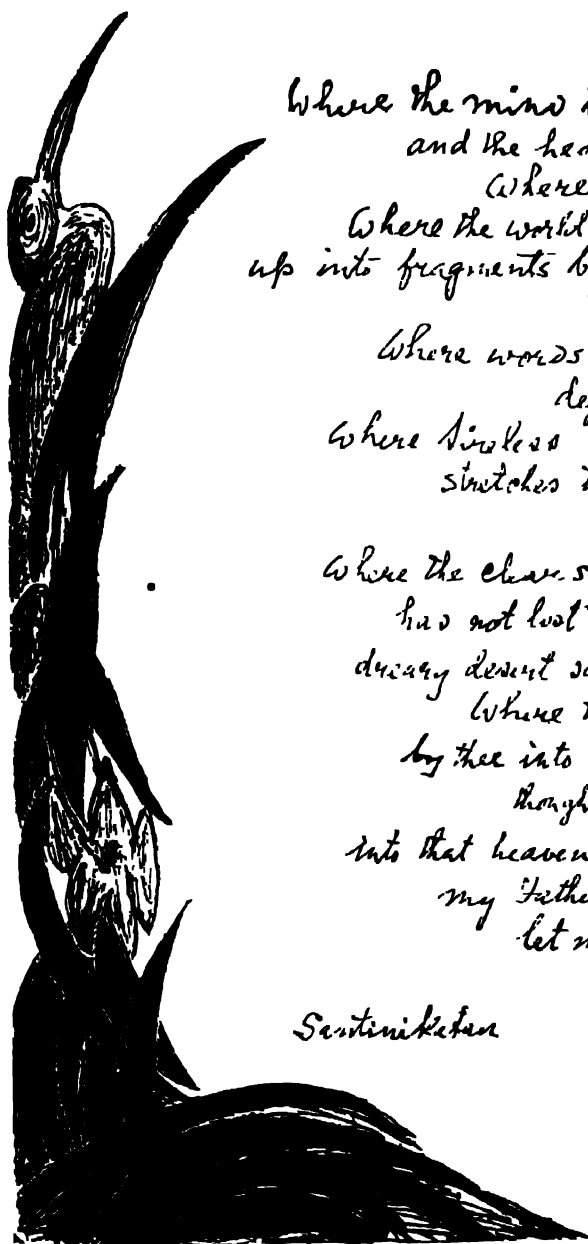 Where the mind
and the
Where
Where the world
up into fragments
Where words

Where tireless
stretches
Where the clear
has not lost
dreary desert
Where
by thee into

into that heaven
my
let
Santiniketan